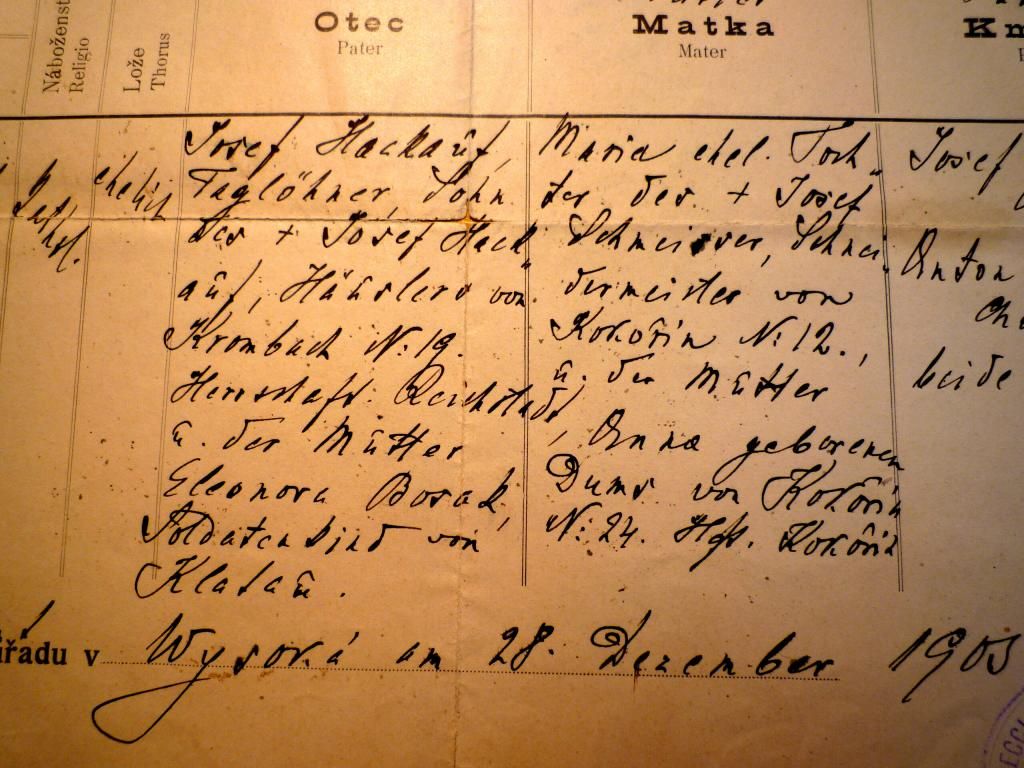 Náboženst
Religio
Lože
Thorus
Otec
Pater
Matka
Mater
Km
kathol.
ehelich
Josef Hackauf,
Taglöhner, Sohn
des + Josef Hack„
auf, Häuslers von
Krombach N: 19.
Herrschaft Reichstadt
u. der Mutter
Eleonora Bosak,
Soldatenkind von
Klatau.
Maria ehel. Toch„
ter des + Josef
Schmeisser, Schnei„
dermeister von
Kokořin N: 12.,
u. der Mutter
Anna geborenen
Dums von Kokořin
N: 24. Hft. Kokořin
Josef
Anton
beide
úřadu v Wysoká am 28. Dezember 1905
ECCL